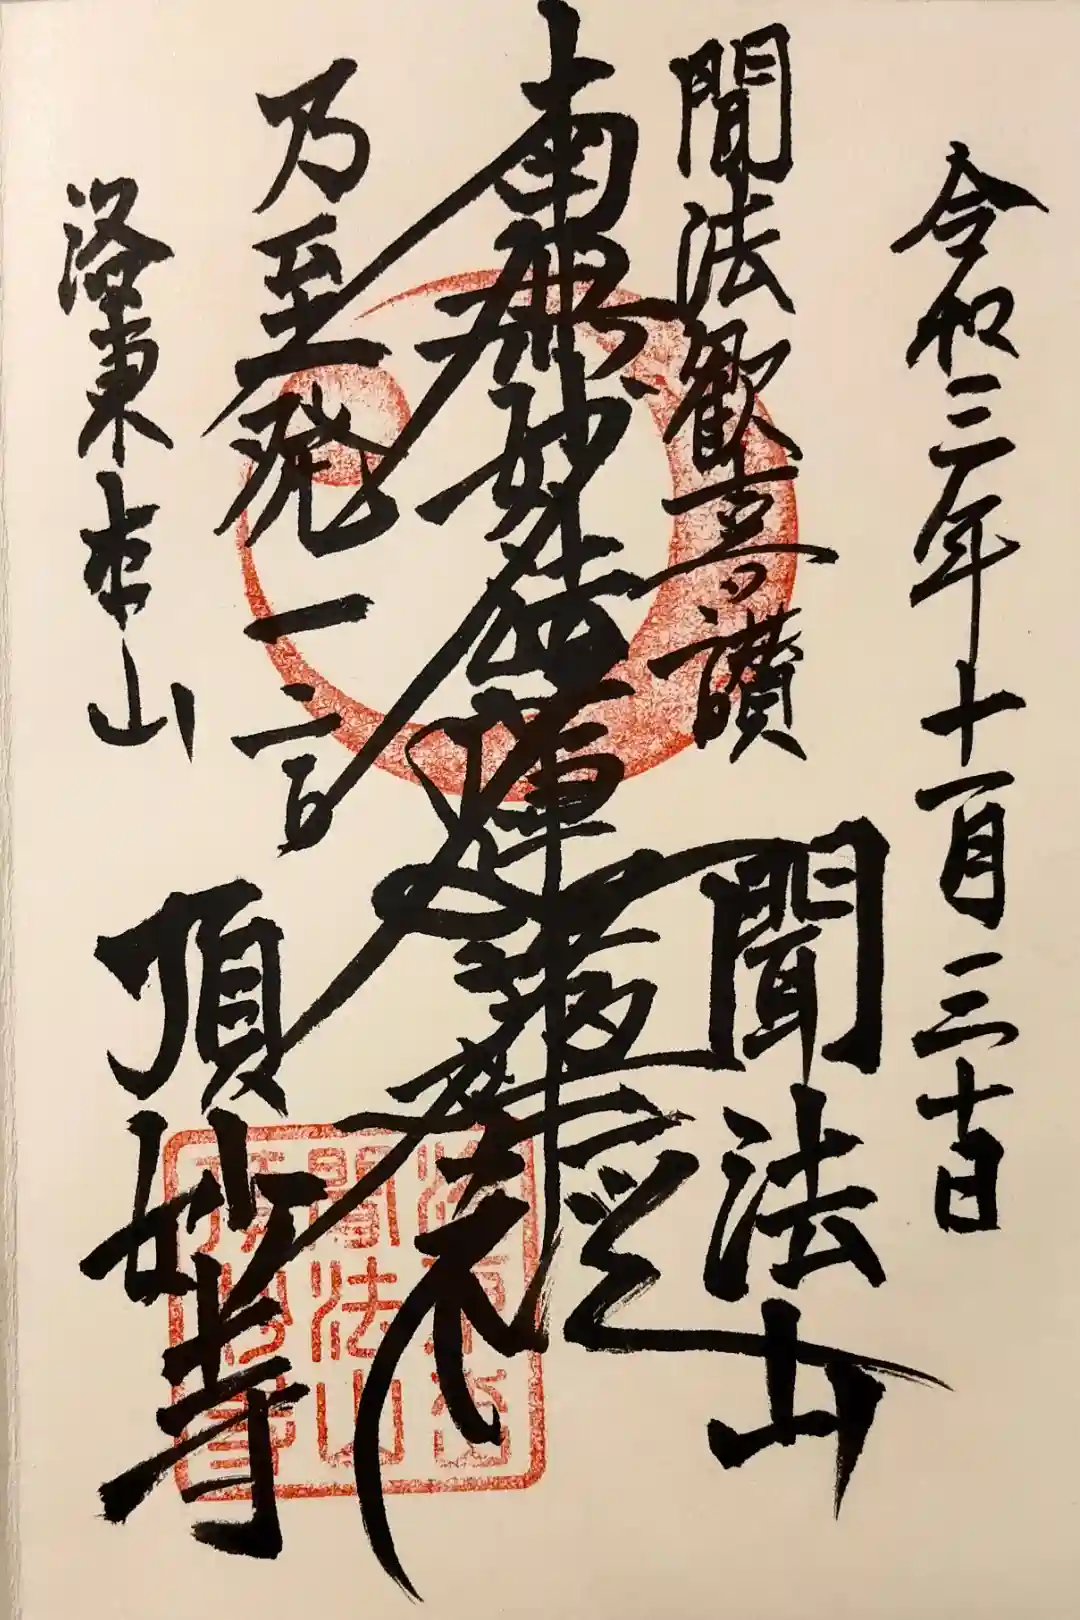 令和三年十一月三十日
聞法歓喜讃
聞法山
南無妙法蓮華経
乃至発一言
頂妙寺
洛東本山
聞法山